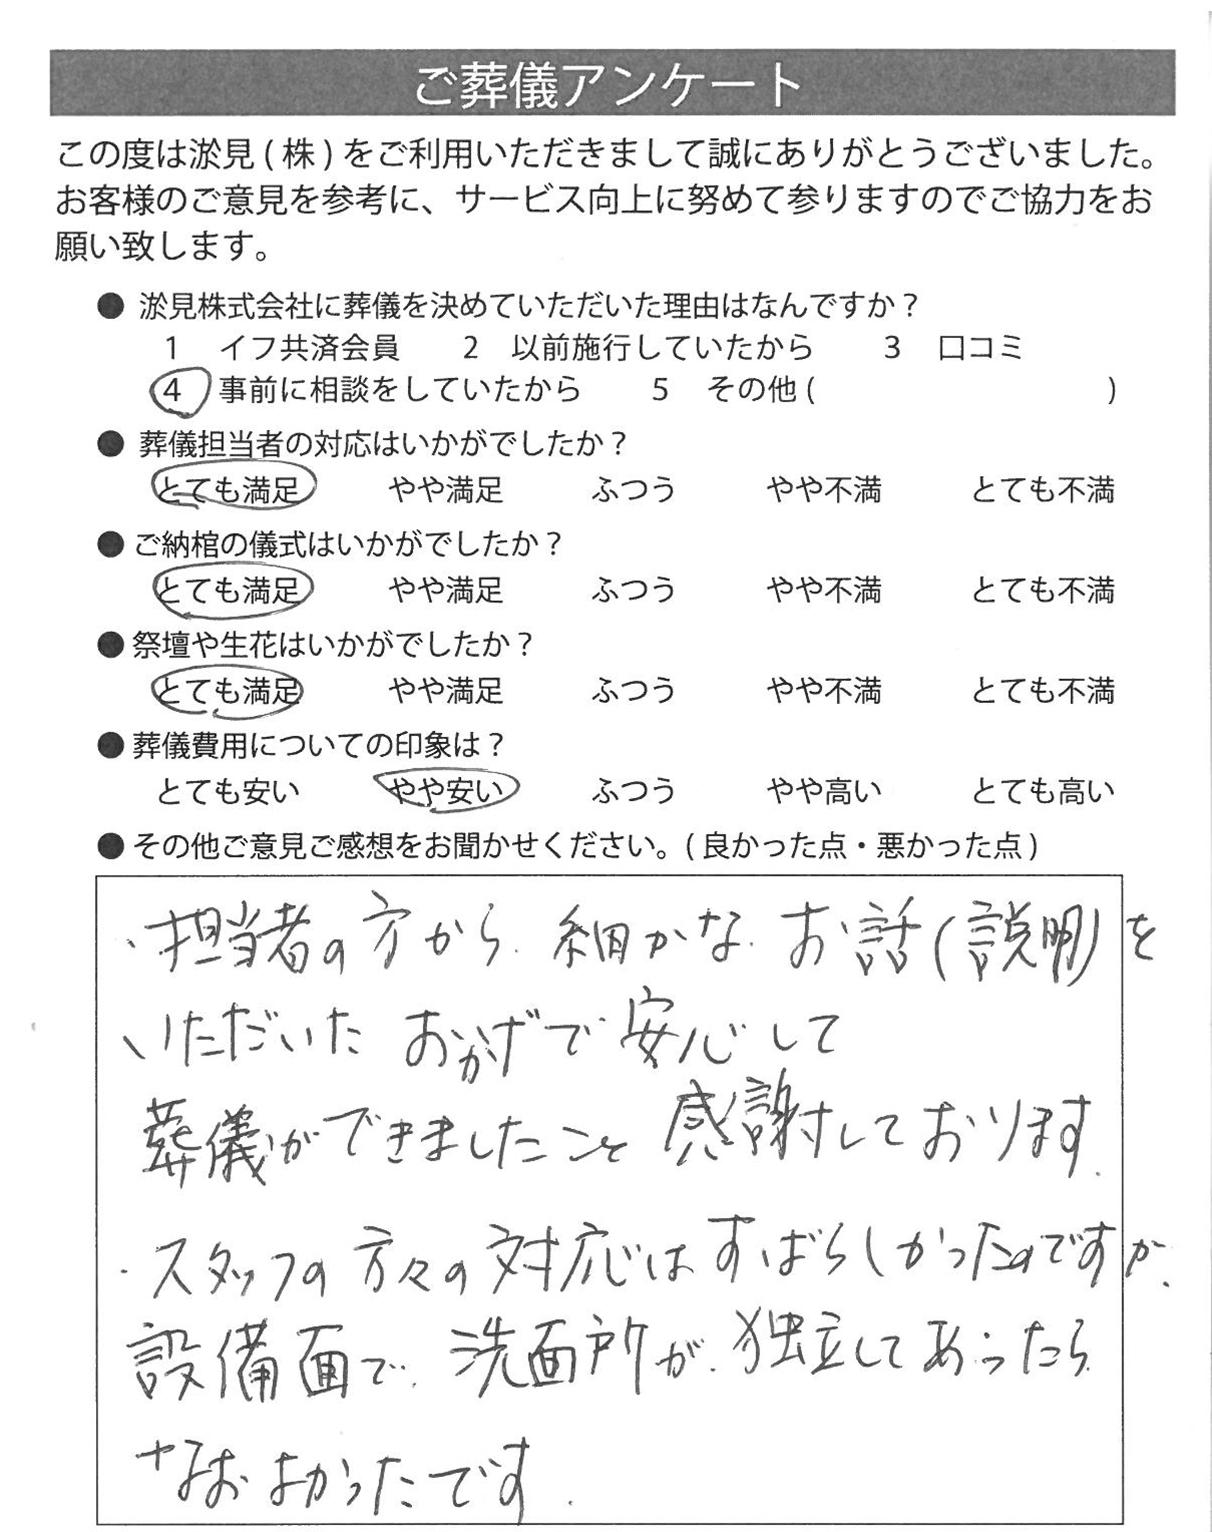 ご葬儀アンケート
この度は淤見(株)をご利用いただきまして誠にありがとうございました。
お客様のご意見を参考に、サービス向上に努めて参りますのでご協力をお
願い致します。
● 淤見株式会社に葬儀を決めていただいた理由はなんですか？
1 イフ共済会員 2 以前施行していたから 3 口コミ
4 事前に相談をしていたから 5 その他( )
● 葬儀担当者の対応はいかがでしたか？
とても満足 やや満足 ふつう やや不満 とても不満
● ご納棺の儀式はいかがでしたか？
とても満足 やや満足 ふつう やや不満 とても不満
● 祭壇や生花はいかがでしたか？
とても満足 やや満足 ふつう やや不満 とても不満
● 葬儀費用についての印象は？
とても安い やや安い ふつう やや高い とても高い
● その他ご意見ご感想をお聞かせください。(良かった点・悪かった点)
・担当者の方から、細かな、お話(説明)を
いただいた おかげで安心して
葬儀ができましたこと 感謝しております。
・スタッフの方々の対応はすばらしかったのですが、
設備面で、洗面所が、独立してあったら
なおよかったです.